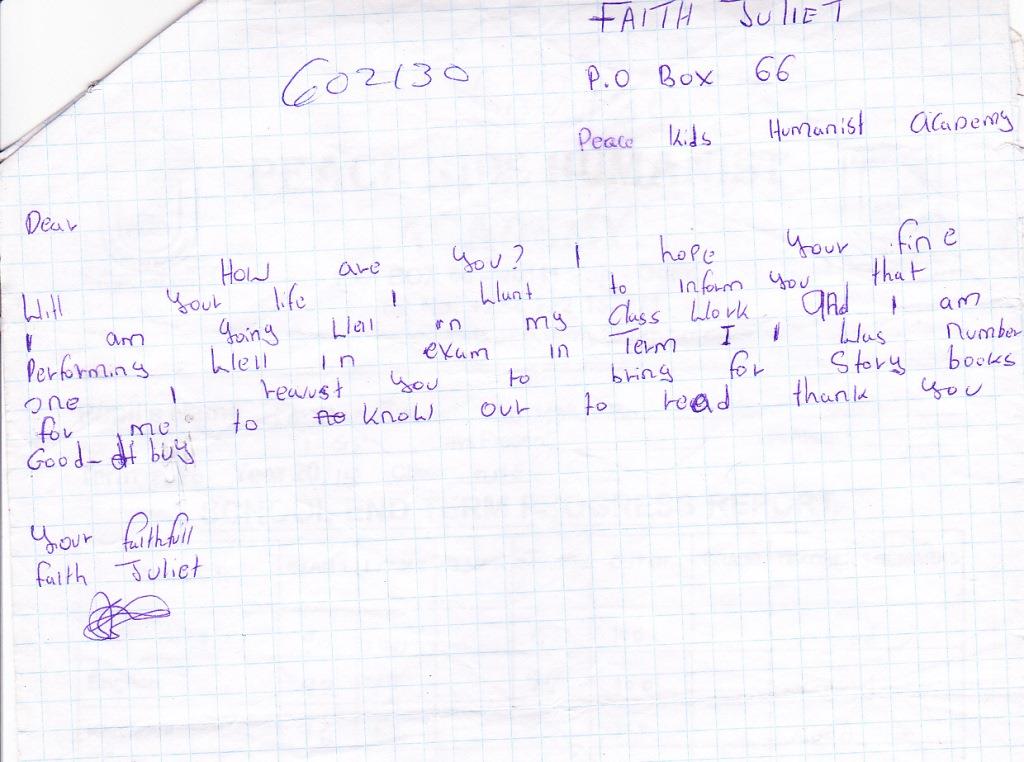 FAITH JULIET
602130
P.O Box 66
Peace kids Humanist academy
Dear
How are you? I hope your fine
Will your life I Wunt to inform you that
I am going Well in my Class Work and I am
Performing Well in exam in Term I I Was number
one I reuust you to bring for Story books
for me to know our to read thank you
Good- buy
your faithfull
faith Juliet